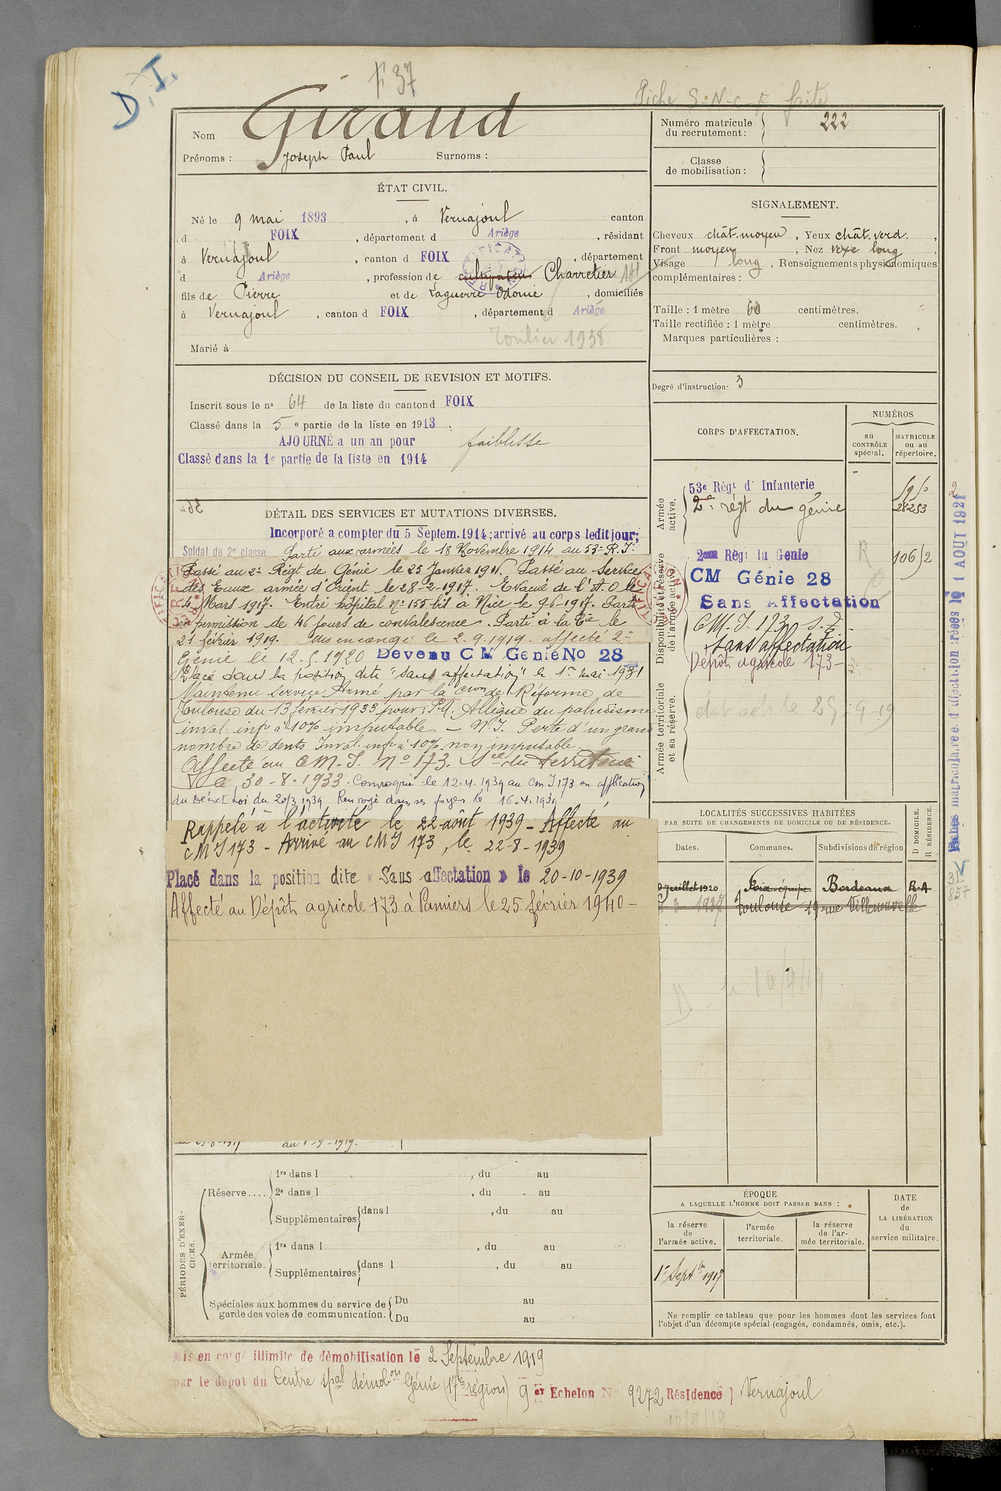 D.I.
F 37
Fiche S.N.C.F. faite
Nom Giraud
Prénoms : Joseph Paul Surnoms :
Numéro matricule du recrutement : 222
Classe de mobilisation :
ÉTAT CIVIL.
Né le 9 mai 1893, à Vernajoul canton
d FOIX, département d Ariège, résidant
à Vernajoul, canton d FOIX, département
d Ariège, profession de cultivateur Charretier
fils de Pierre et de Laguerre Odonie, domiciliés
à Vernajoul, canton d FOIX, département d Ariège
1938
Marié à
SIGNALEMENT.
Cheveux chât. moyen, Yeux chât. verd.,
Front moyen, Nez long,
Visage long, Renseignements physionomiques
complémentaires :
Taille : 1 mètre 60 centimètres.
Taille rectifiée : 1 mètre centimètres.
Marques particulières :
Degré d'instruction : 3
DÉCISION DU CONSEIL DE REVISION ET MOTIFS.
Inscrit sous le nº 64 de la liste du canton d FOIX
Classé dans la 5 e partie de la liste en 1913.
AJOURNÉ a un an pour faiblesse
Classé dans la 1e partie de la liste en 1914
DÉTAIL DES SERVICES ET MUTATIONS DIVERSES.
Incorporé a compter du 5 Septem. 1914; arrivé au corps ledit jour;
Soldat de 2e classe Parti aux armées le 18 Novembre 1914 au 53e R.I.
Passé au 2e Régt de Génie le 25 Janvier 191. Passé au Service
des Eaux armée d'Orient le 28-2-1917. Evacué de l'A.O le
4 Mars 1917. Entré hôpital nº 155 bis à Nice le 9-6-1917. Parti
en permission de 45 jours de convalescence. Parti à la Cie le
21 février 1919. Mis en congé le 2.9.1919. affecté 2e
Génie le 12.5.1920 Devenu CM Génie No 28
Placé dans la position dite "Sans affectation" le 1er mai 1931
Maintenu Service Armé par la Cion de Réforme de
Toulouse du 13 février 1933 pour: P.I. Allègue du paludisme
inval. infre à 10% imputable - N.I. Perte d'un grand
nombre de dents Inval. infre à 10% non imputable.
Affecté au C.M.I. Nº 173. Sce du Territoire
le 30-8-1933. Convoqué le 12.4.1939 au Cm I 173 en application
du Décret Loi du 20/3/1939 Renvoyé dans ses foyers le 16.4.1939
Rappelé à l'activité le 22 août 1939 - Affecté au
CMI 173 - Arrivé au CMI 173, le 22-8-1939
Placé dans la position dite « Sans affectation » le 20-10-1939
Affecté au Dépôt agricole 173 à Pamiers le 25 février 1940 -
au 1-9-1919.
CORPS D'AFFECTATION.
NUMÉROS
au CONTRÔLE spécial.
MATRICULE ou au répertoire.
Armée active.
53e Régt d'Infanterie
2e régt du génie
Disponibilité et réserve de l'armée active.
2eme Régt du Genie R 106/2
CM Génie 28
Sans Affectation
C.M.I. 173 s.t.
Sans affectation
Dépôt agricole 173 -
Armée territoriale et sa réserve.
LOCALITÉS SUCCESSIVES HABITÉES
PAR SUITE DE CHANGEMENTS DE DOMICILE OU DE RÉSIDENCE.
Dates. Communes. Subdivisions de région D DOMICILE. R RÉSIDENCE.
juillet 1920 Foix équipe Bordeaux R.A
1937 Toulouse 19 rue Villenouvelle
PÉRIODES D'EXERCICES.
Réserve....
1re dans l , du au
2e dans l , du au
Supplémentaires dans l , du au
Armée territoriale.
1re dans l , du au
Supplémentaires dans l , du au
Spéciales aux hommes du service de garde des voies de communication.
Du au
Du au
ÉPOQUE
A LAQUELLE L'HOMME DOIT PASSER DANS :
la réserve de l'armée active.
l'armée territoriale.
la réserve de l'armée territoriale.
DATE de LA LIBÉRATION du service militaire.
1er Septbre 1917
Ne remplir ce tableau que pour les hommes dont les services font l'objet d'un décompte spécial (engagés, condamnés, omis, etc.).
Mis en congé illimité de démobilisation le 2 Septembre 1919
par le dépôt du Centre spal démobon Génie (17e région) 9 er Echelon No 9272 Résidence Vernajoul